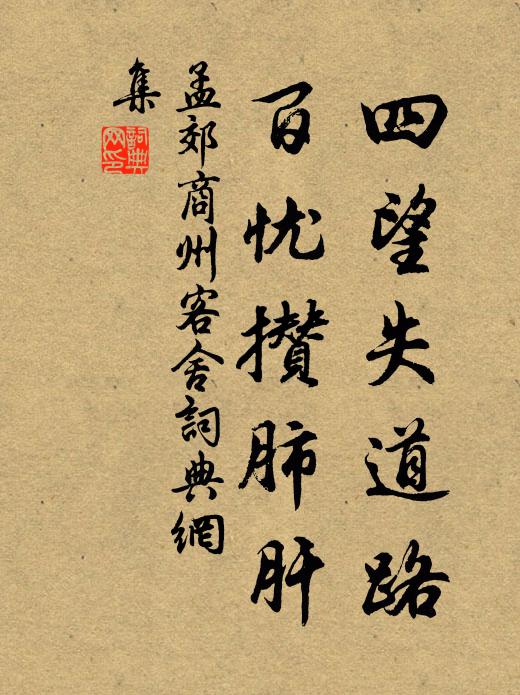 四望失道路
百忧攒肺肝
孟郊商州客舍詞典網
集
詞典
网印